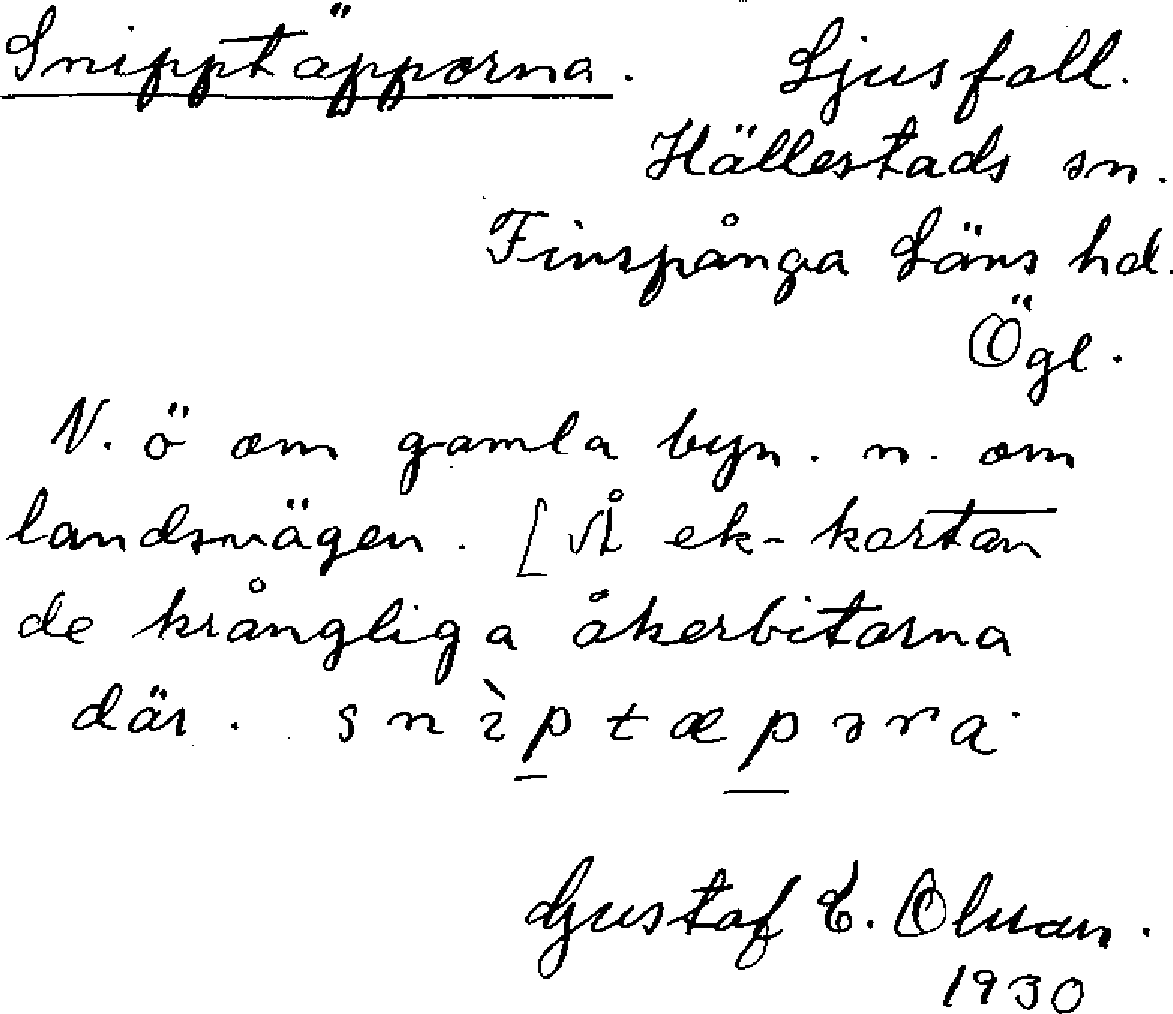 Snipptäpporna. Ljusfall.
Hällestads sn.
Finspånga Läns hd.
Ögl.
N. ö om gamla byn. n. om
landsvägen. [ Å ek-kartan
de krångliga åkerbitarna
där. snìptæpɔrna
Gustaf E. Olsson.
1930